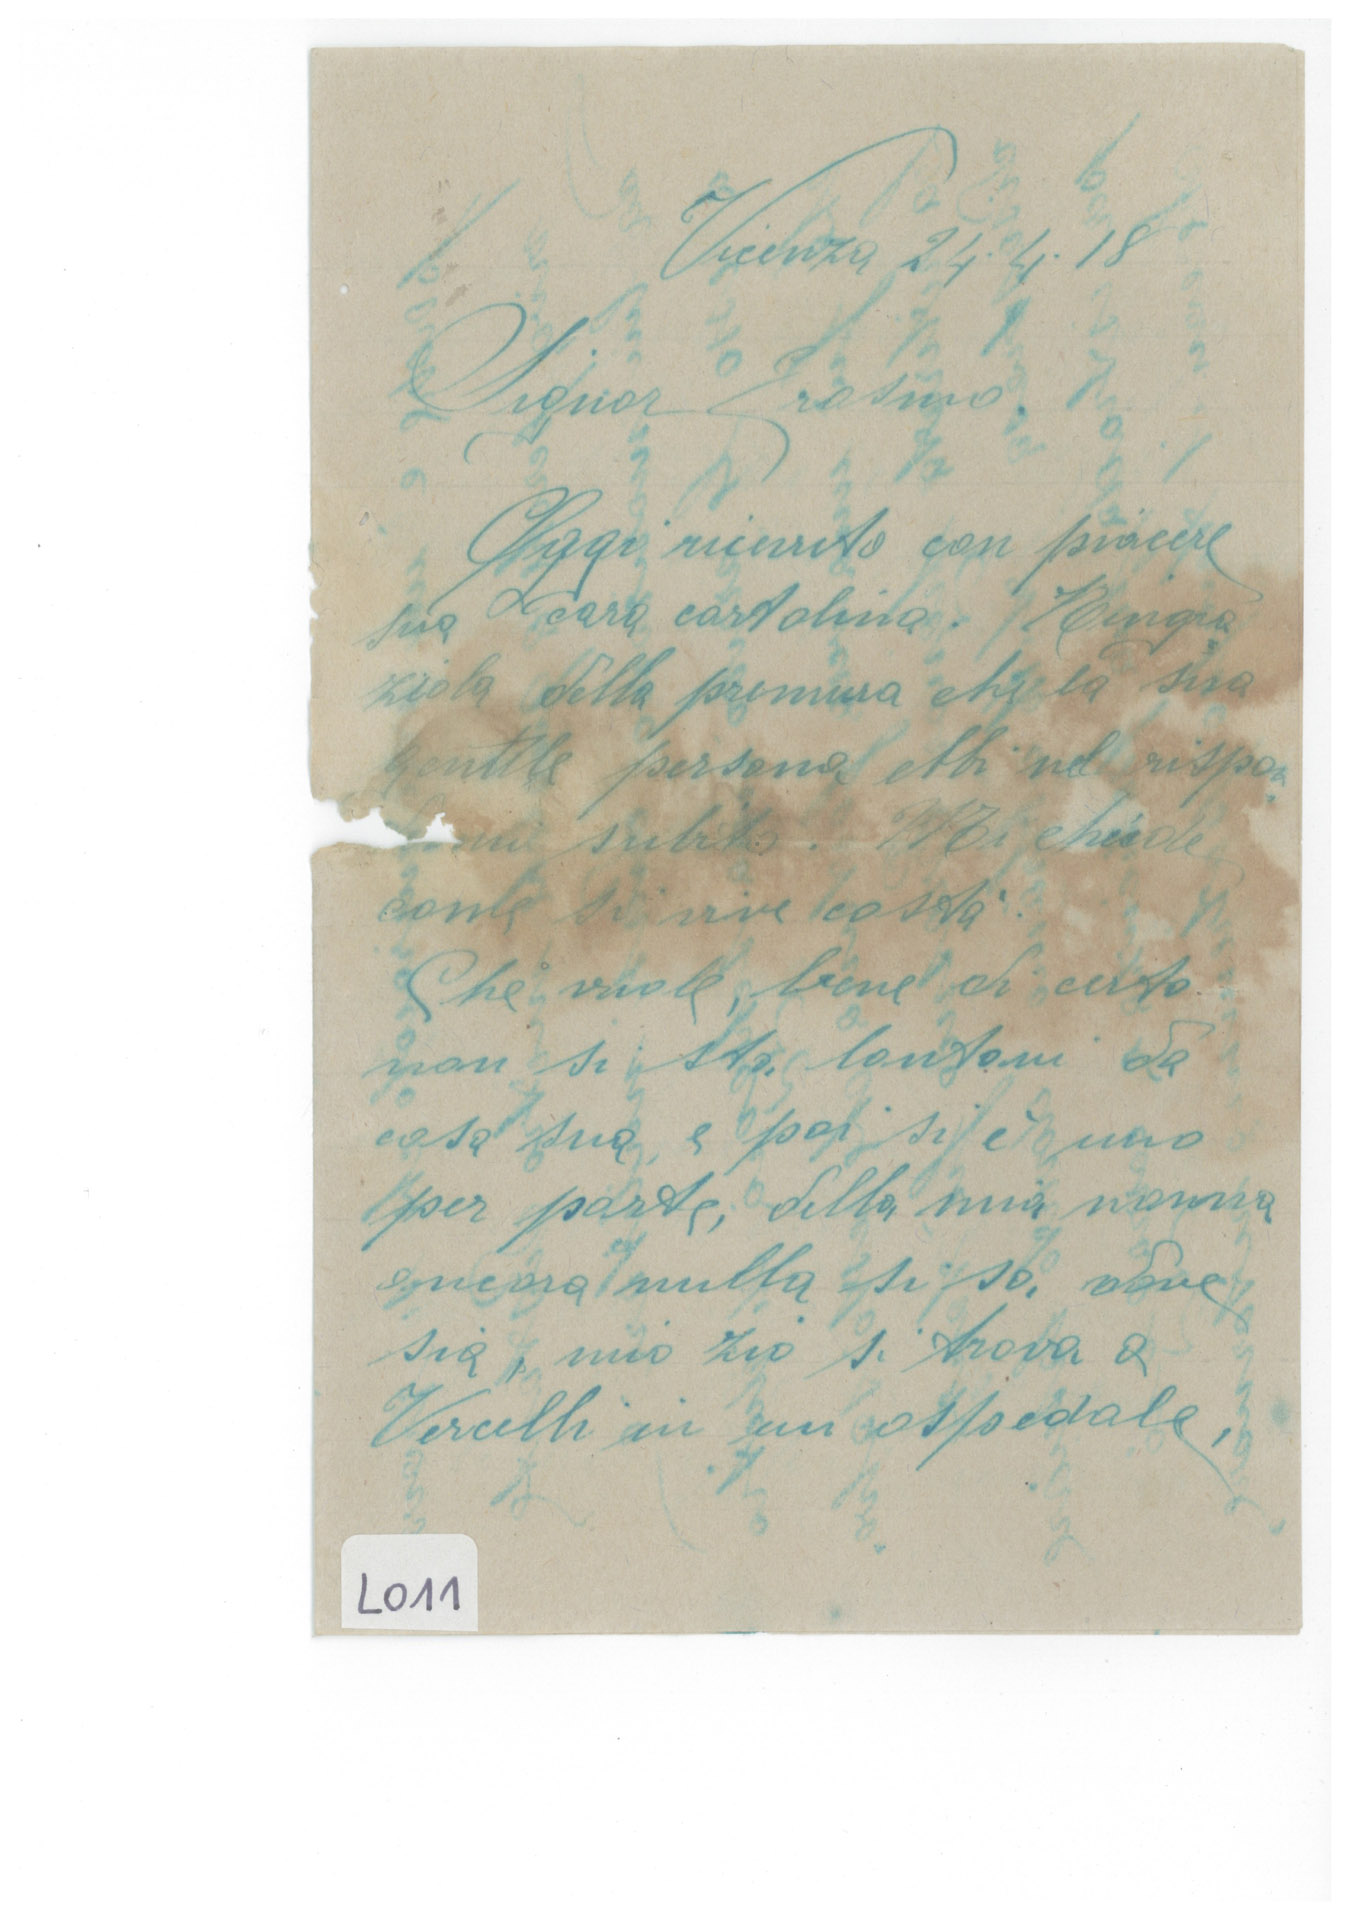 Vicenza 24.4.18
Signor Erasmo.
Oggi ricevuto con piacere
sua cara cartolina. Ringra
ziola della premura che la sua
gentile persona ebbi nel rispon
subito. Mi chiede
come si vive costà.
Che vuole, bene di certo
non si sta lontani da
casa sua, e poi si è uno
per parte, della mia nonna
ancora nulla si sa, dove
sia, mio zio si trova a
Vercelli in un ospedale,
L011